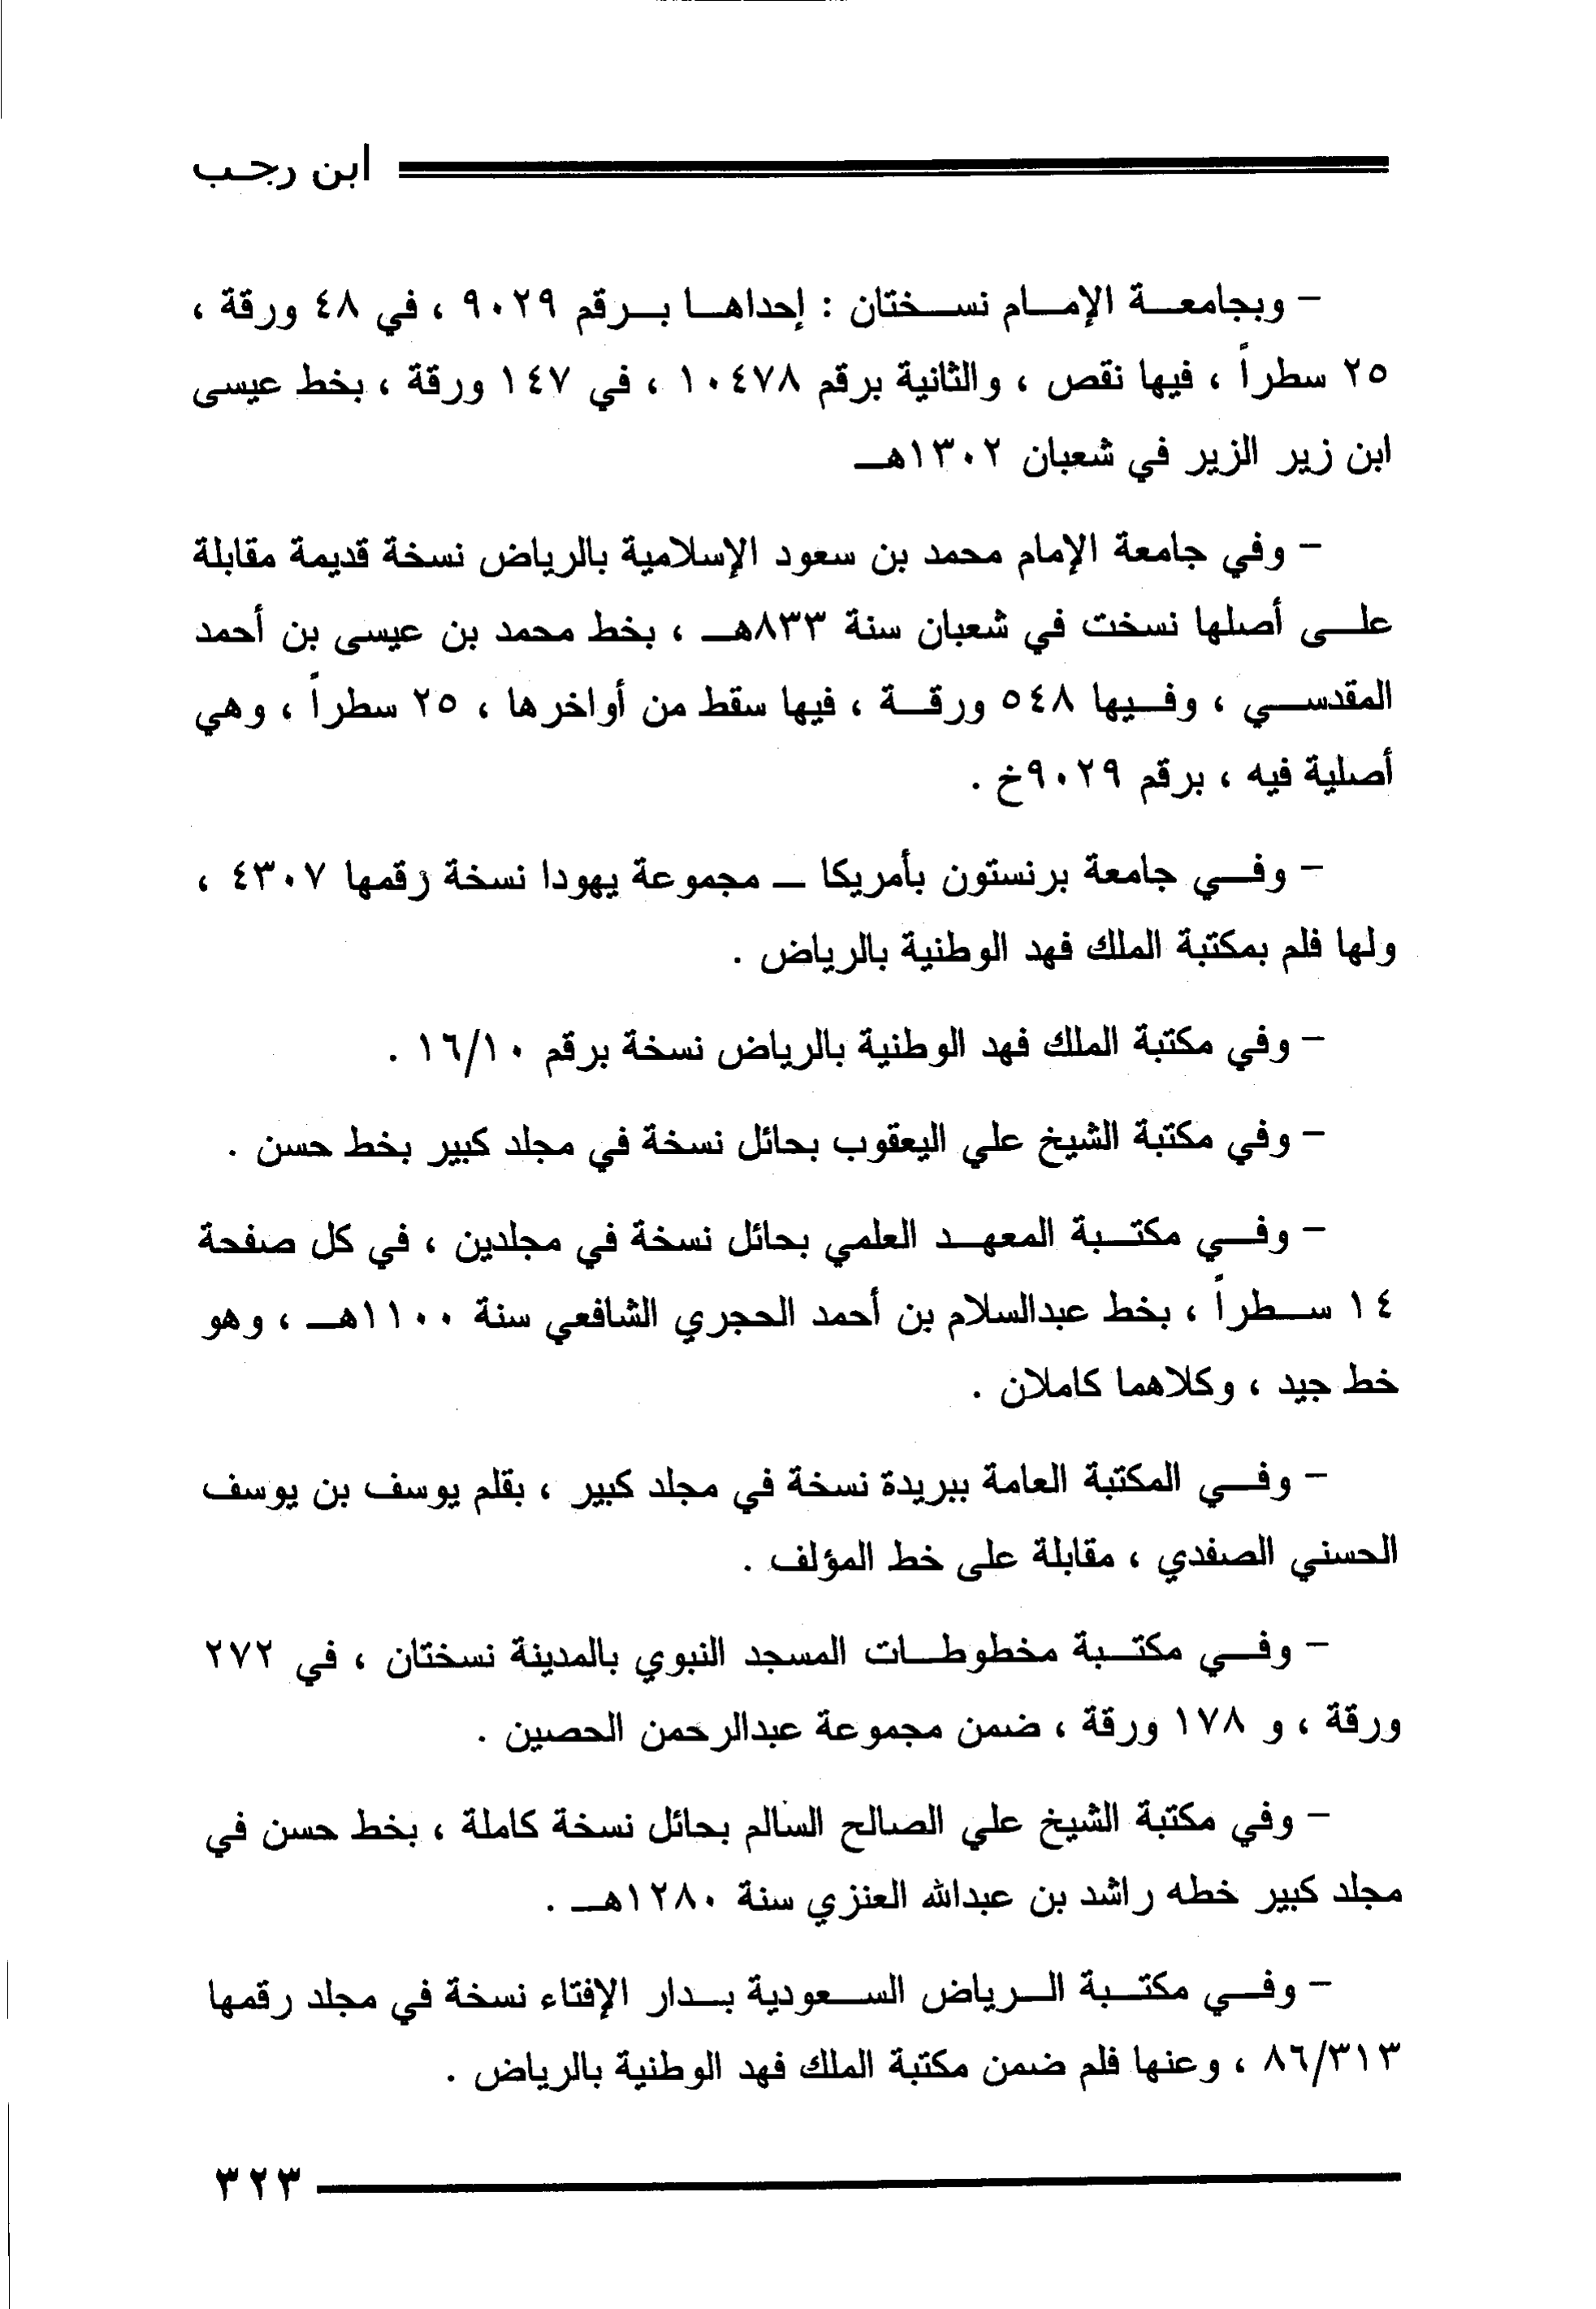 ابن رجب
- وبجامعة الإمام نسختان : إحداها برقم ٩٠٢٩ ، في ٤٨ ورقة ،
٢٥ سطراً ، فيها نقص ، والثانية برقم ١٠٤٧٨ ، في ١٤٧ ورقة ، بخط عيسى
ابن زير الزير في شعبان ١٣٠٢هـ
- وفي جامعة الإمام محمد بن سعود الإسلامية بالرياض نسخة قديمة مقابلة
على أصلها نسخت في شعبان سنة ٨٣٣هـ ، بخط محمد بن عيسى بن أحمد
المقدسي ، وفيها ٥٤٨ ورقة ، فيها سقط من أواخرها ، ٢٥ سطراً ، وهي
أصلية فيه ، برقم ٩٠٢٩خ .
- وفي جامعة برنستون بأمريكا – مجموعة يهودا نسخة رقمها ٤٣٠٧ ،
ولها فلم بمكتبة الملك فهد الوطنية بالرياض .
- وفي مكتبة الملك فهد الوطنية بالرياض نسخة برقم ١٦/١٠ .
- وفي مكتبة الشيخ علي اليعقوب بحائل نسخة في مجلد كبير بخط حسن .
- وفي مكتبة المعهد العلمي بحائل نسخة في مجلدين ، في كل صفحة
١٤ سطراً ، بخط عبدالسلام بن أحمد الحجري الشافعي سنة ١١٠٠هـ ، وهو
خط جيد ، وكلاهما كاملان .
- وفي المكتبة العامة ببريدة نسخة في مجلد كبير ، بقلم يوسف بن يوسف
الحسني الصفدي ، مقابلة على خط المؤلف .
- وفي مكتبة مخطوطات المسجد النبوي بالمدينة نسختان ، في ٢٧٢
ورقة ، و ١٧٨ ورقة ، ضمن مجموعة عبدالرحمن الحصين .
- وفي مكتبة الشيخ علي الصالح السالم بحائل نسخة كاملة ، بخط حسن في
مجلد كبير خطه راشد بن عبدالله العنزي سنة ١٢٨٠هـ .
- وفي مكتبة الرياض السعودية بدار الإفتاء نسخة في مجلد رقمها
٨٦/٣١٣ ، وعنها فلم ضمن مكتبة الملك فهد الوطنية بالرياض .
٣٢٣